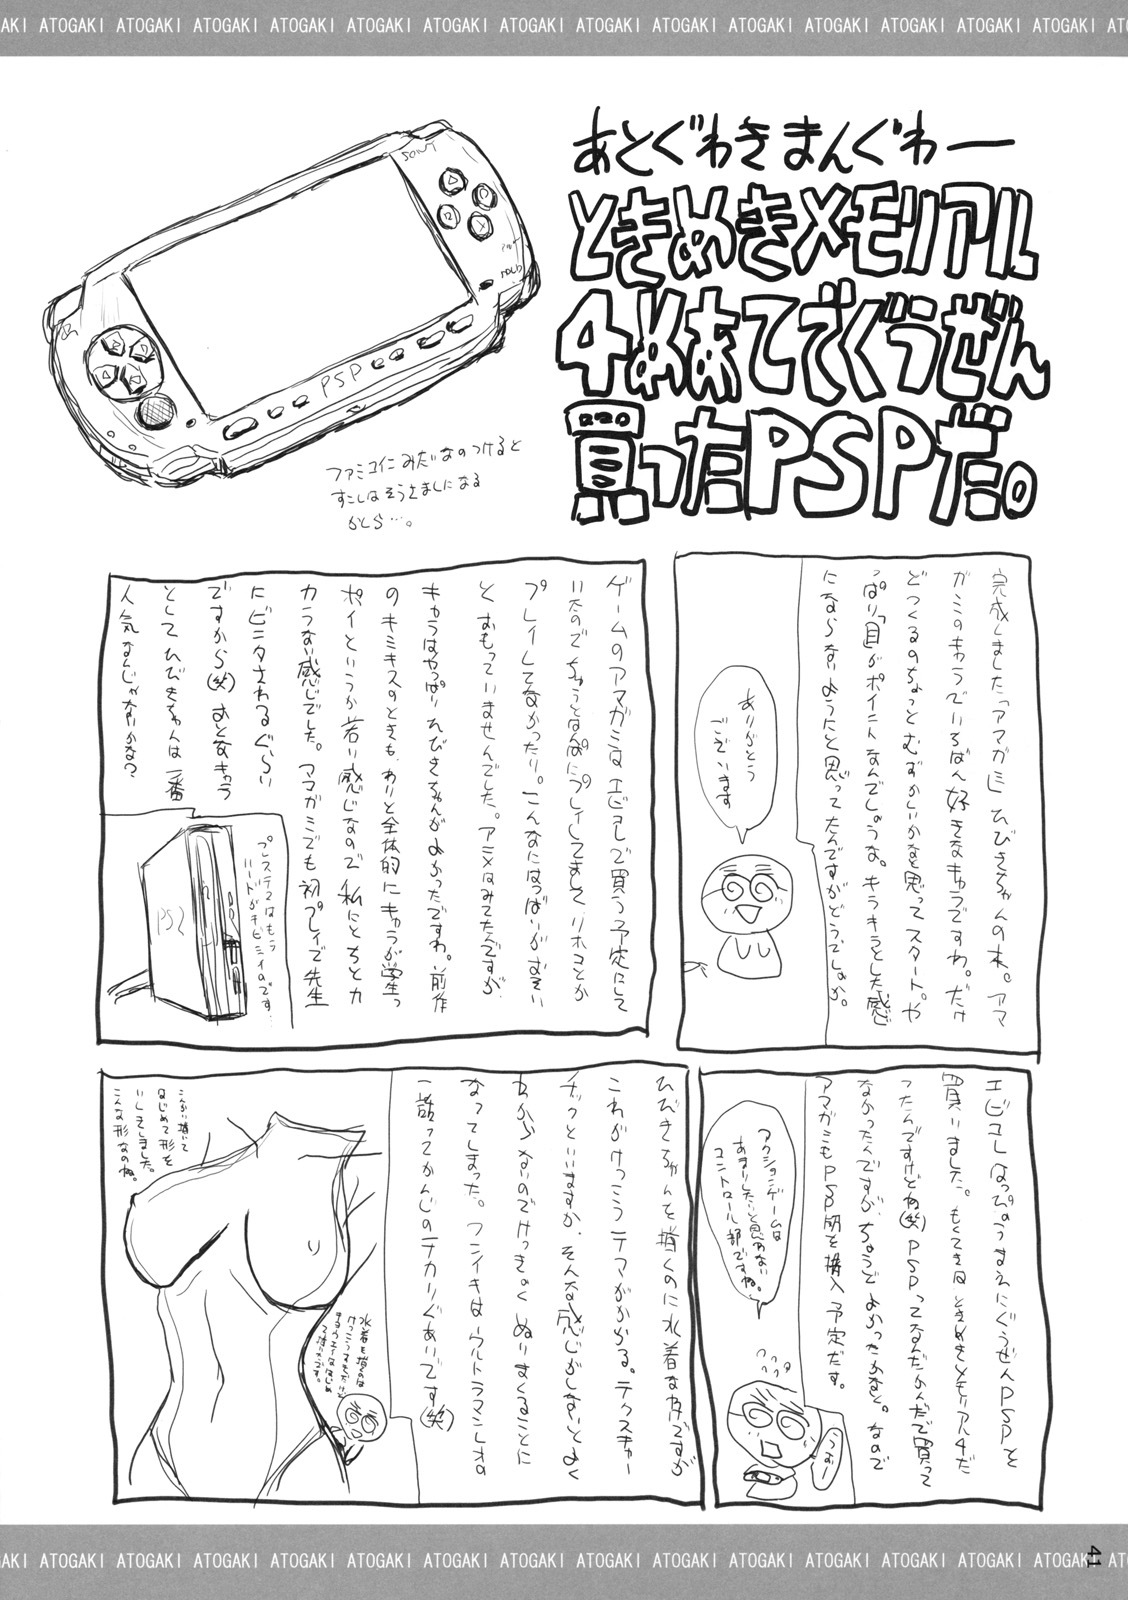 ATOGAKI ATOGAKI ATOGAKI ATOGAKI ATOGAKI ATOGAKI ATOGAKI ATOGAKI ATOGAKI ATOGAKI
あとぐわき まんぐわー
ときめきメモリアル
4めあてでぐうぜん
買ったPSPだ。
SONY
PSP
ファミコインみたいなのつけると
すこしはそうさましになる
かしら…。
完成しました「アマガミ」ひびきちゃんの本。アマ
ガミのキャラでいちばん好きなキャラですわ。だけ
どつくるのちょっとむずかしいかなと思ってスタート。や
っぱり「目」がポイントなんでしょうな。キラキラとした感じ
にならないようにと思ってたんですがどうでしょか。
ありがとう
ございます
ゲームのアマガミはエビコレで買う予定にして
いたのでちゅうとはんぱにプレイしてまして リホコとか
プレイしてなかったり。こんなにはっばいがおそい
とおもっていませんでした。アニメはみてたんですが、
キャラはやっぱりひびきちゃんがよかったですわ。前作
のキミキスのときも、わりと全体的にキャラが学生っ
ポイというか若い感じなので私にとちとカ
カラない感じでした。アマガミでも初プレイで先生
にビンタされるぐらい
ですから(笑)おとなキャラ
としてひびきちゃんは一番
人気なんじゃないかな?
プレステ2はもう
ハードがキビシイのです…
PS2
エビコレはっぴょうのまえにぐうぜんPSPを
買いました。もくてきはときめきメモリアル4だ
ったんですけどね(笑)PSPってなんだかんだで買って
なかったんですが、ちょうどよかったかなと。なので
アマガミもPSP版を購入予定だす。
アクションゲームは
あまりしたいと思わない
コントロール部ですね。
つおー
ひびきちゃんを描くのに水着なカタですが
これがけっこうテマがかかる。テクスチャー
チックといいますか、そんな感じがしないとよく
わからないのでけっきょくぬりまくることに
なってしまった。フンイキはウルトラマンレオの
一話ってかんじのテカリぐあいです(笑)
水着を描くのは
けっこうすきだけど
こんかい描いて
はじめて形を
いしきしました。
こんな形なのね。
41
ATOGAKI ATOGAKI ATOGAKI ATOGAKI ATOGAKI ATOGAKI ATOGAKI ATOGAKI ATOGAKI ATOGAKI